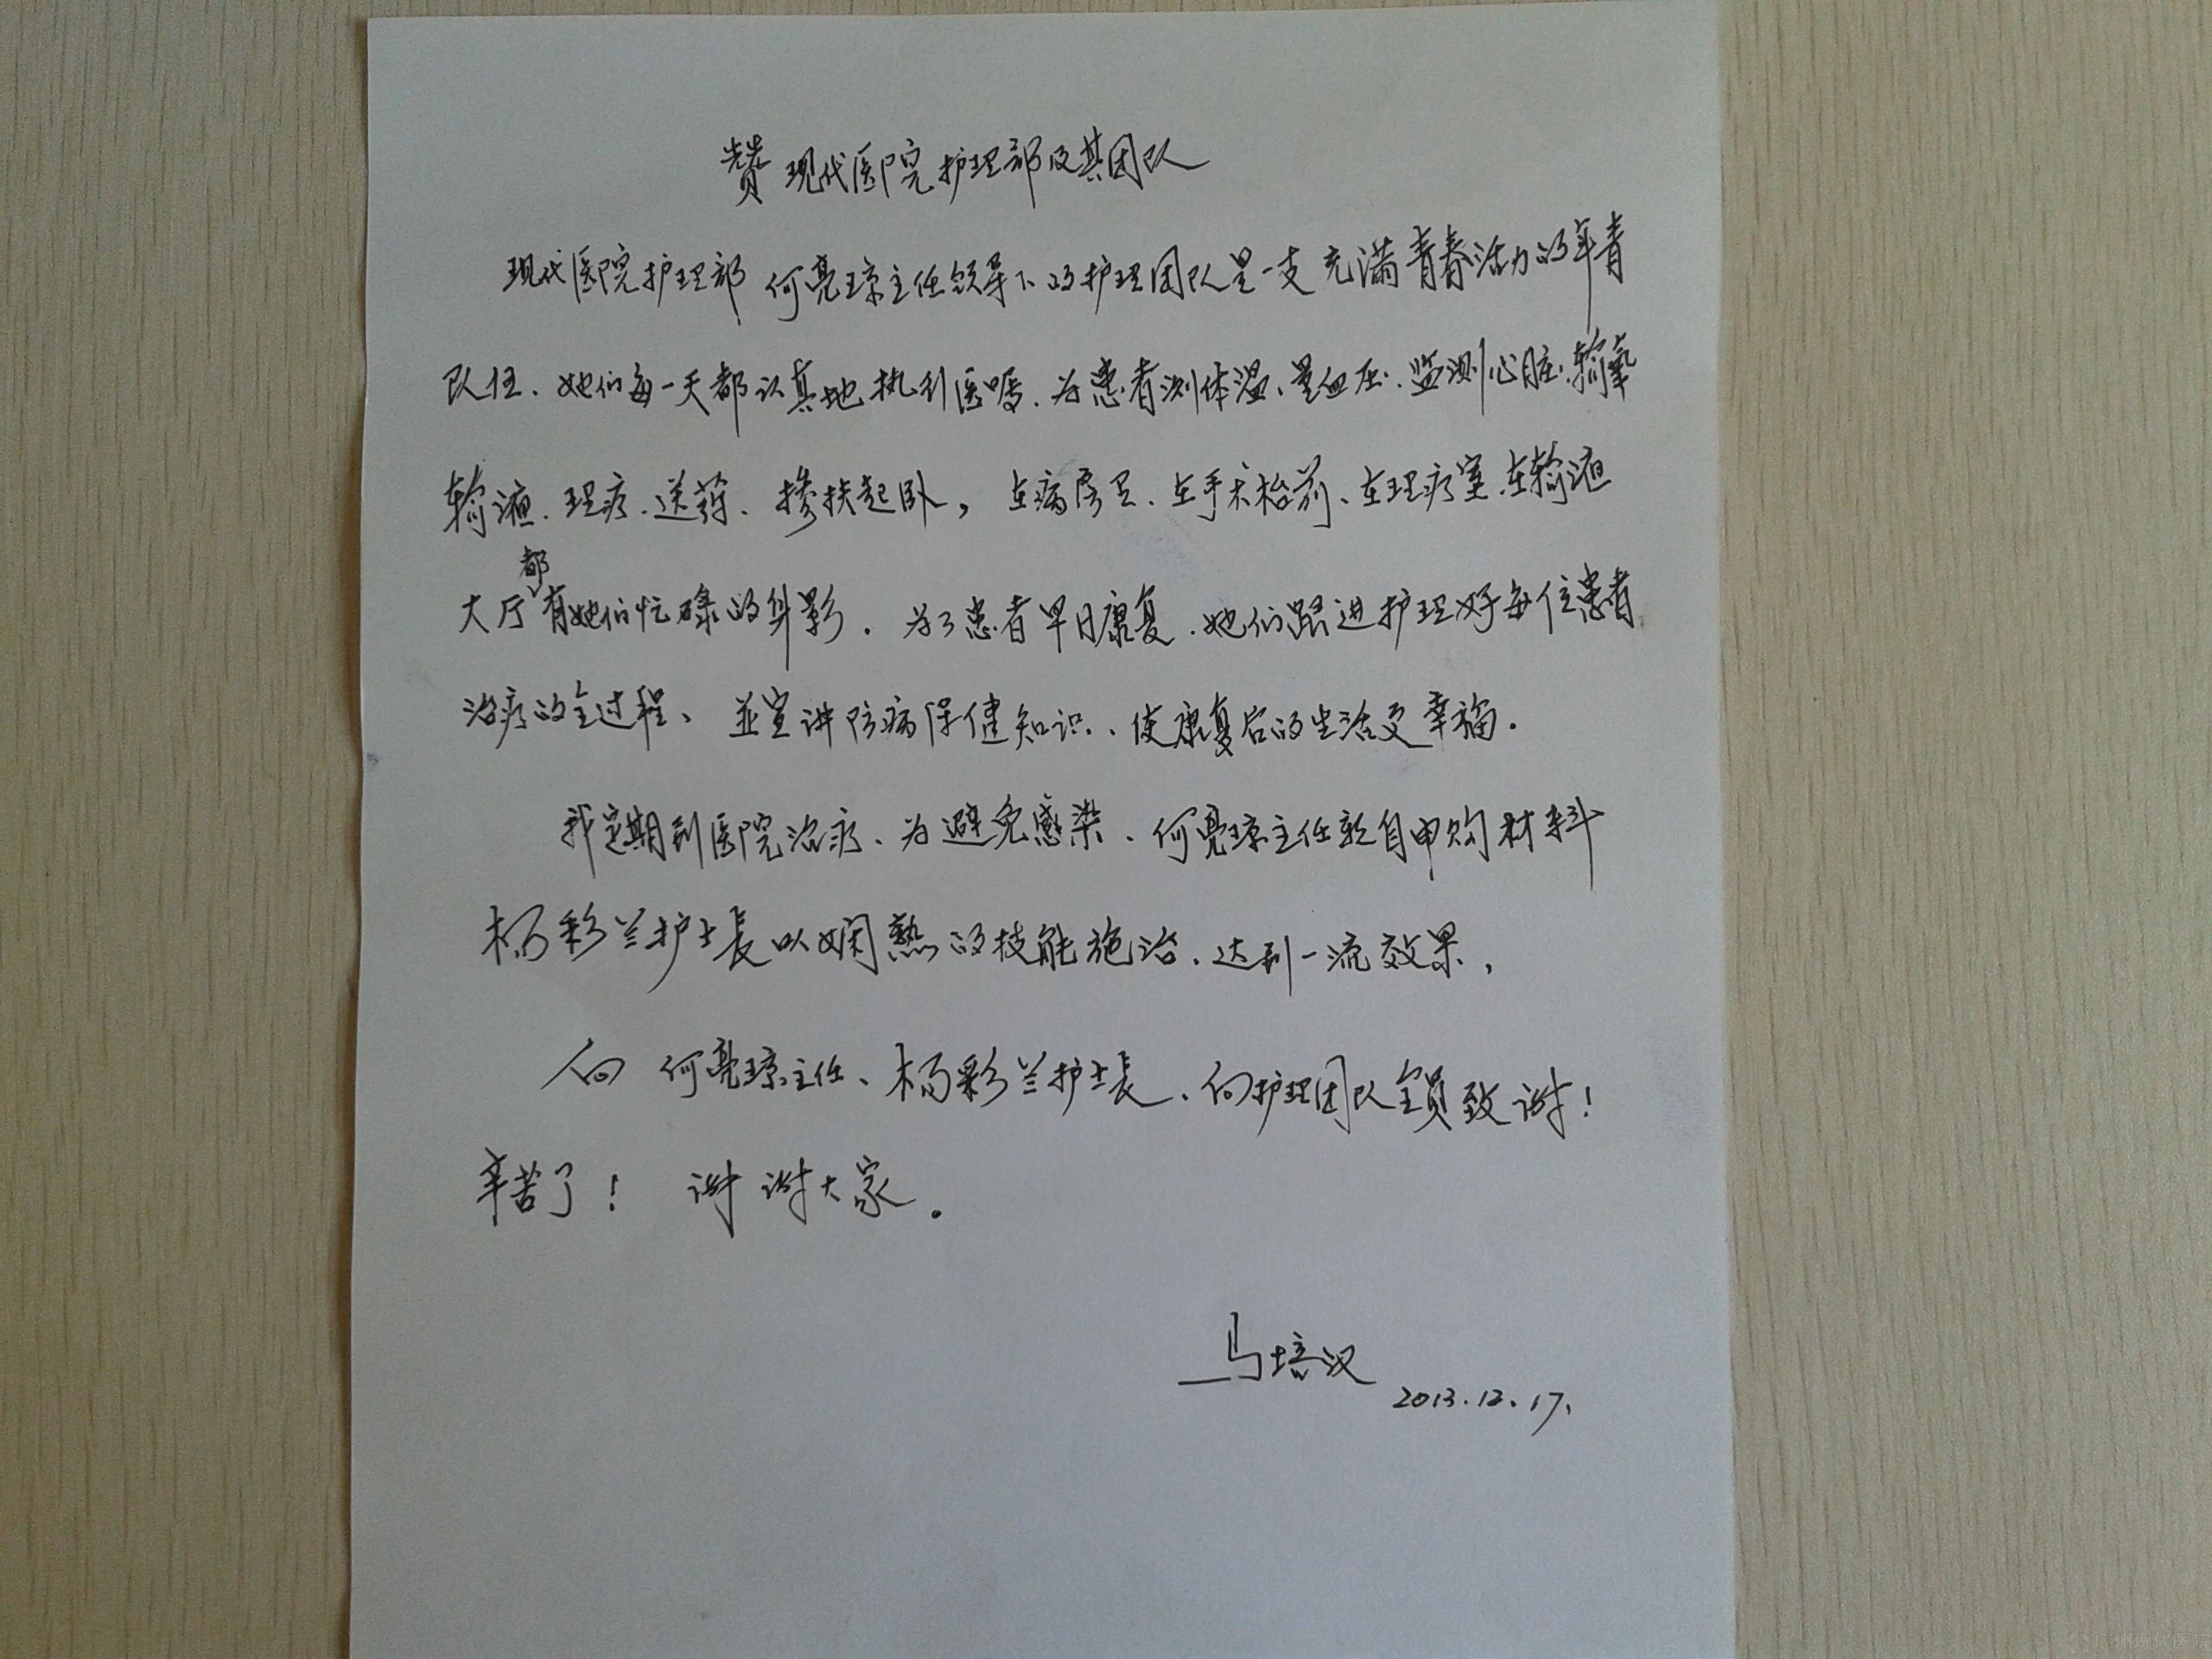 赞现代医院护理部及其团队
现代医院护理部 何亮琼主任领导下的护理团队是一支充满青春活力的年青
队伍、她们每一天都认真地执行医嘱、为患者测体温、量血压、监测心脏、输氧
输液、理疗、送药、搀扶起卧，在病房里、在手术枱前、在理疗室、在输液
大厅都有她们忙碌的身影．为了患者早日康复、她们跟进护理好每位患者
治疗的全过程、並宣讲防病保健知识、使康复后的生活更幸福．
我定期到医院治疗、为避免感染、何亮琼主任亲自申购材料
杨彩兰护士長以娴熟的技能施治、达到一流效果，
向 何亮琼主任、杨彩兰护士長、向护理团队全員致谢！
辛苦了！ 谢谢大家．
马培汉
2013.12.17、
广州现代医院